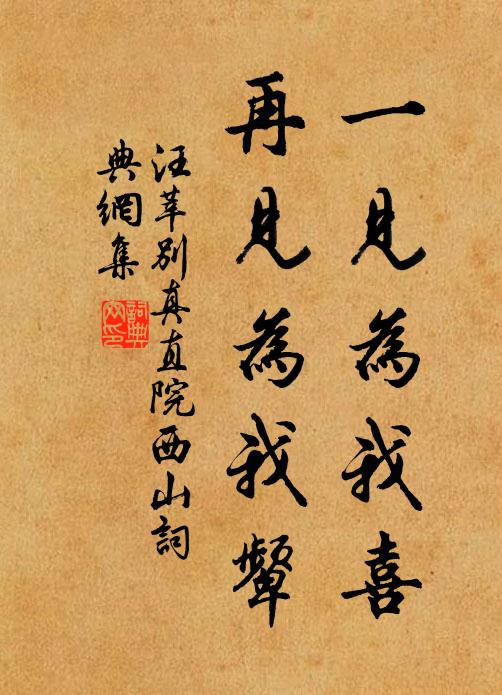 一見為我喜
再見為我顰
汪莘別真直院西山詞
典網集
詞典
网印